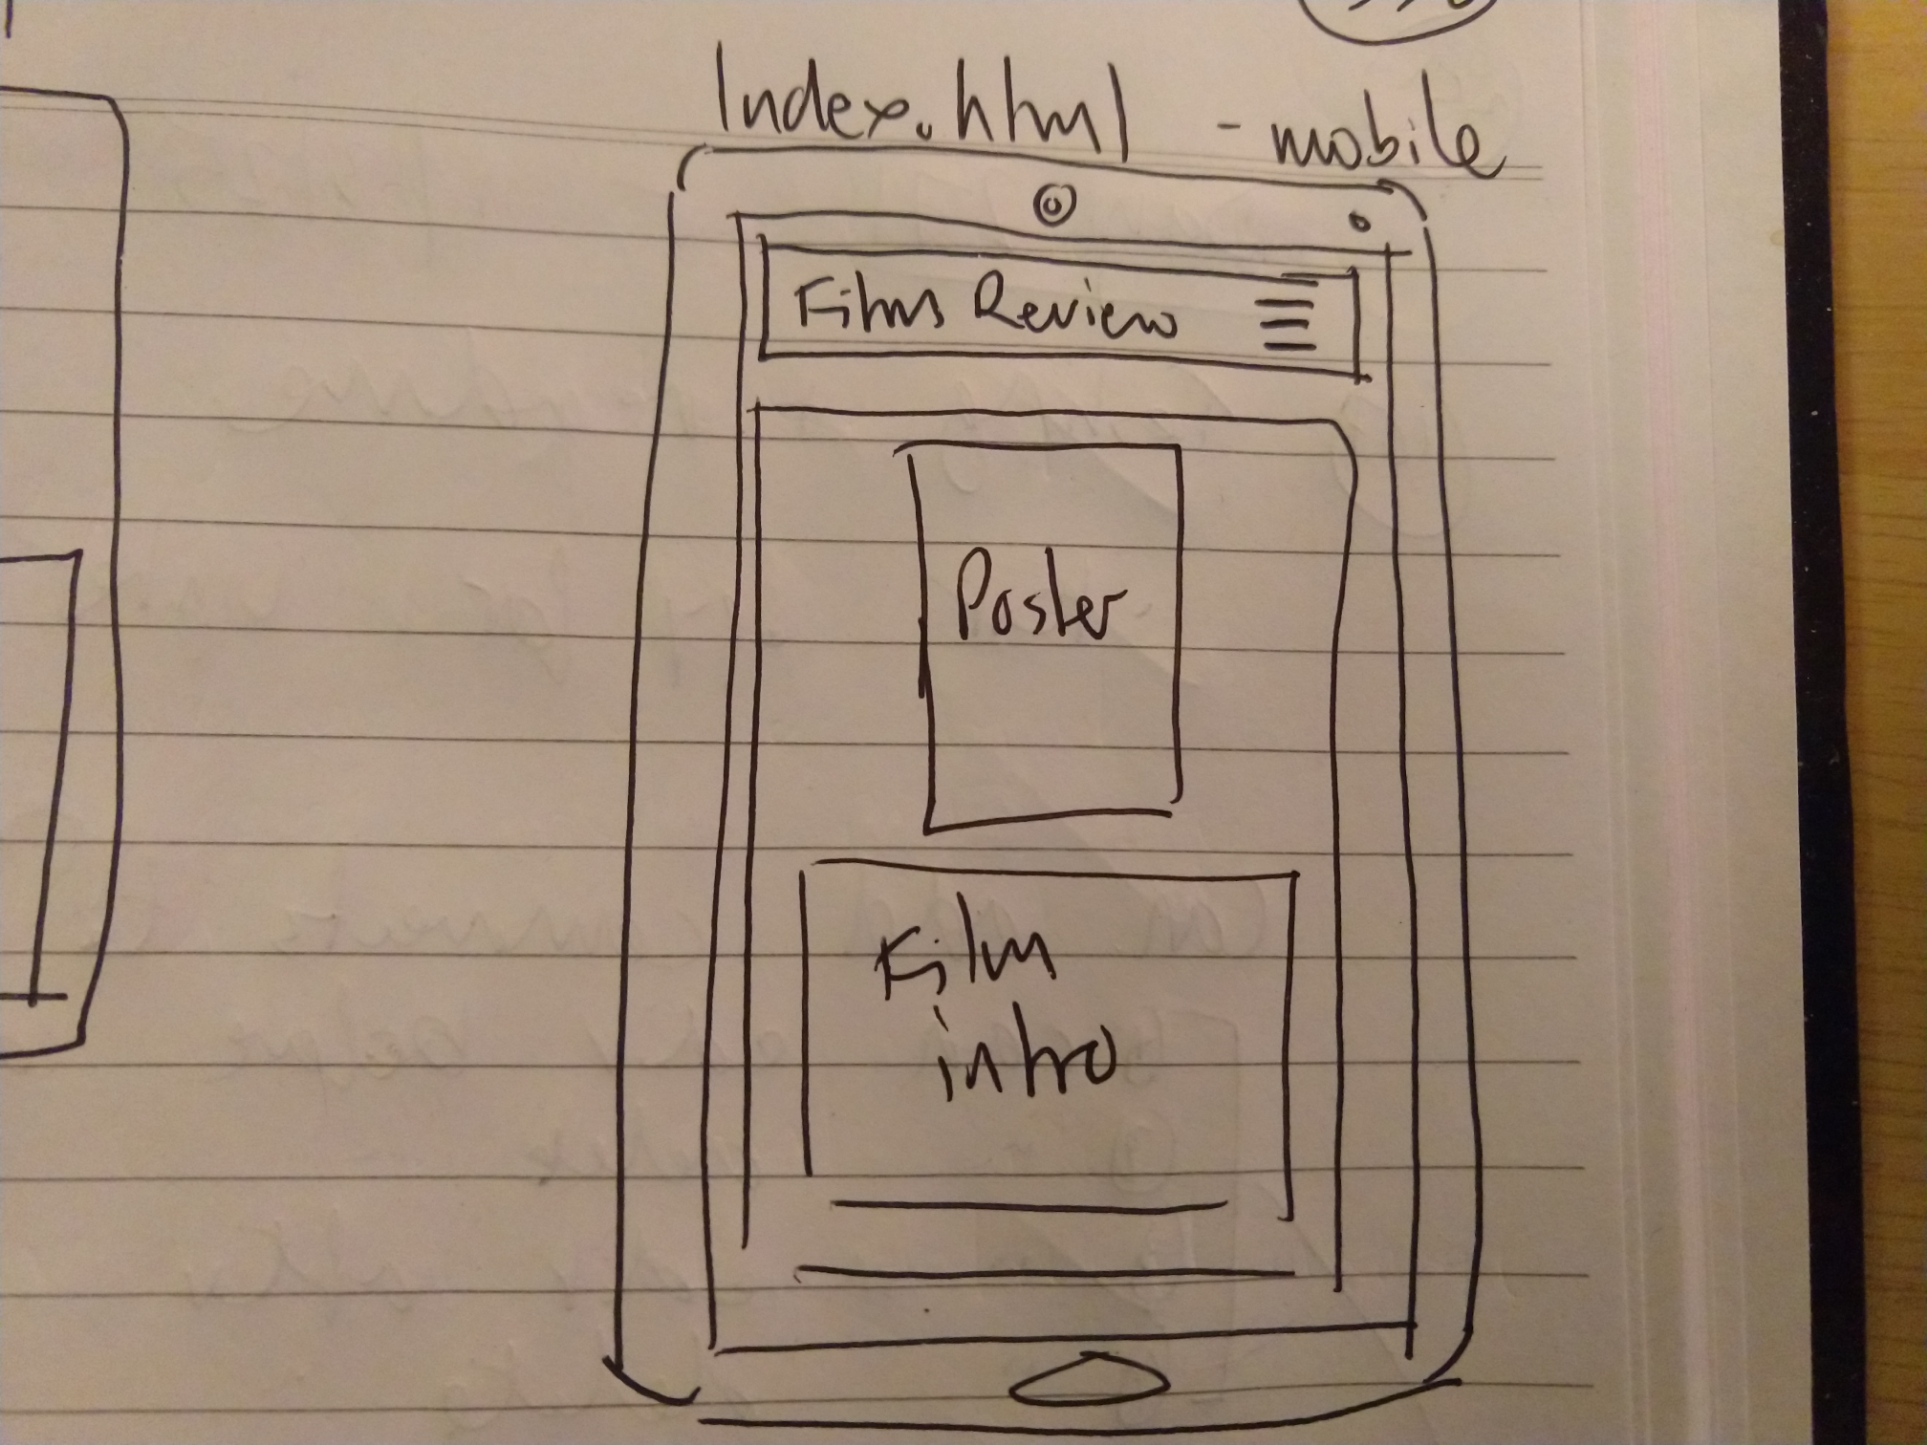 Index.html - mobile
Films Review
Poster
Film
intro